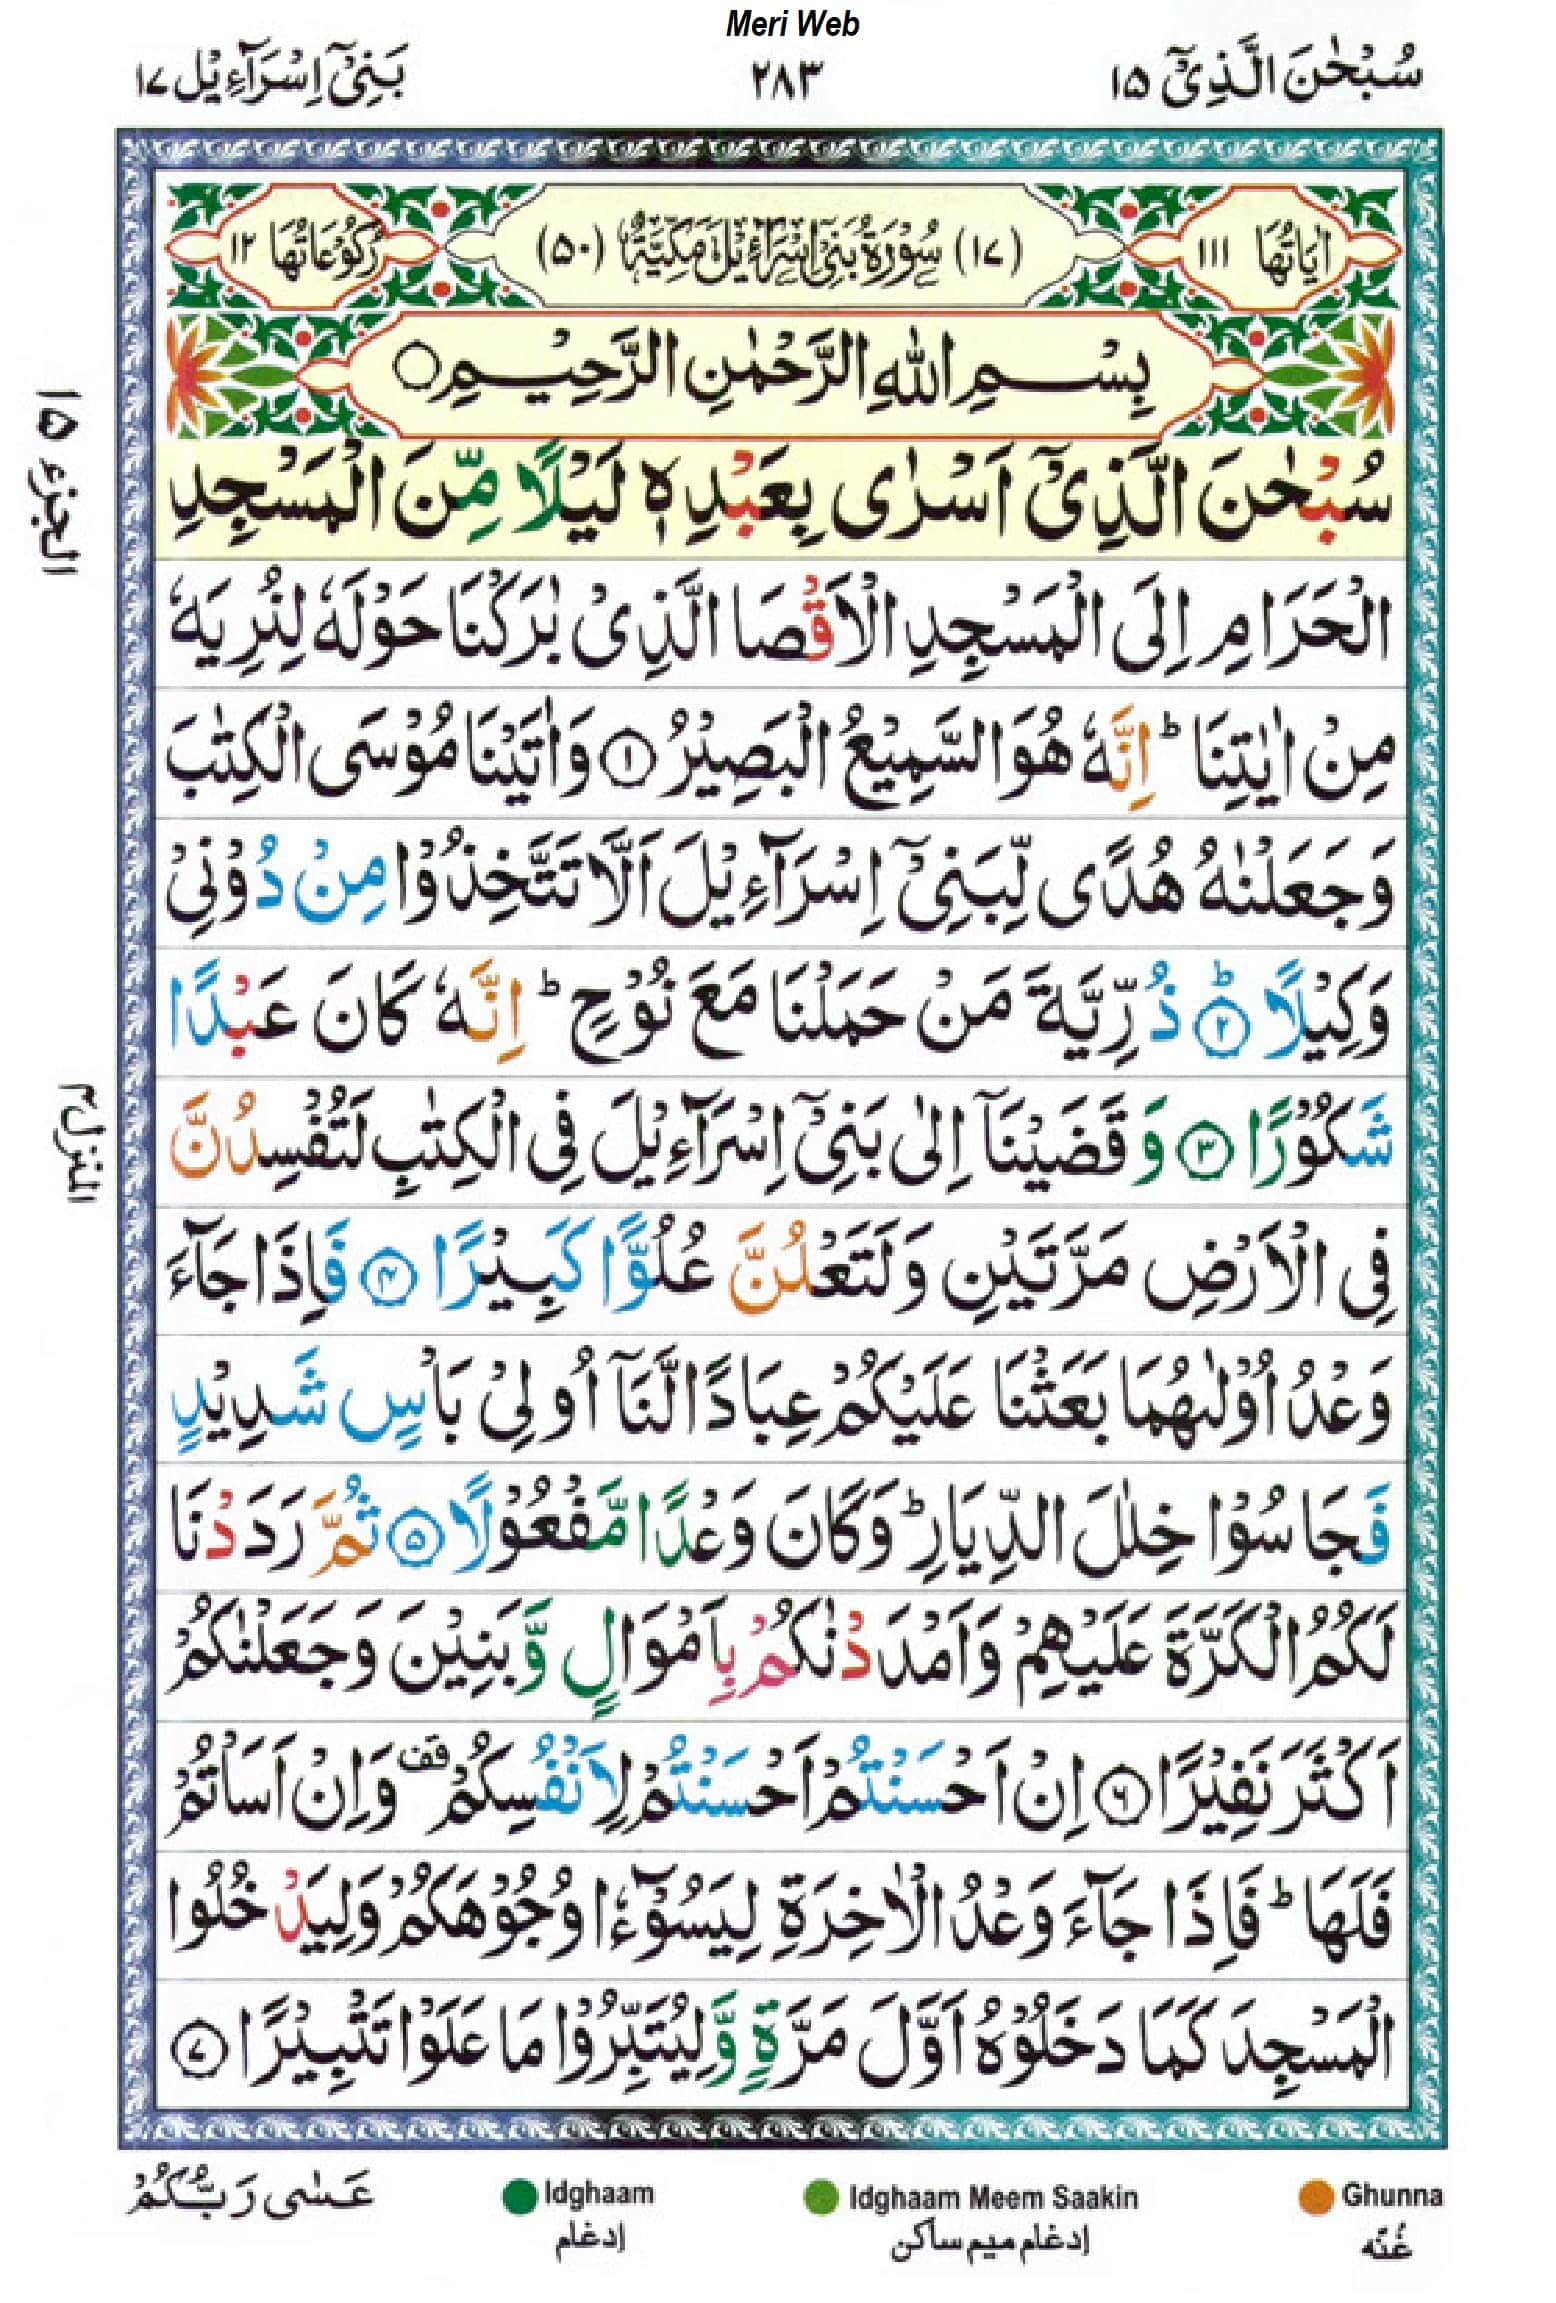 Meri Web
سُبْحٰنَ الَّذِیْۤ ۱۵
۲۸۳
بَنِیْۤ اِسْرَآءِیْل ۱۷
اٰیَاتُهَا ۱۱۱
(۱۷) سُوْرَةُ بَنِیْۤ اِسْرَآءِیْلَ مَكِّیَّةٌ (۵۰)
رُكُوْعَاتُهَا ۱۲
بِسْمِ اللّٰهِ الرَّحْمٰنِ الرَّحِیْمِ۝
سُبْحٰنَ الَّذِیْۤ اَسْرٰی بِعَبْدِهٖ لَیْلًا مِّنَ الْمَسْجِدِ
الْحَرَامِ اِلَی الْمَسْجِدِ الْاَقْصَا الَّذِیْ بٰرَكْنَا حَوْلَهٗ لِنُرِیَهٗ
مِنْ اٰیٰتِنَا ؕ اِنَّهٗ هُوَ السَّمِیْعُ الْبَصِیْرُ ۝۱ وَاٰتَیْنَا مُوْسَی الْكِتٰبَ
وَجَعَلْنٰهُ هُدًی لِّبَنِیْۤ اِسْرَآءِیْلَ اَلَّا تَتَّخِذُوْا مِنْ دُوْنِیْ
وَكِیْلًا ۝۲ؕ ذُرِّیَّةَ مَنْ حَمَلْنَا مَعَ نُوْحٍ ؕ اِنَّهٗ كَانَ عَبْدًا
شَكُوْرًا ۝۳ وَ قَضَیْنَاۤ اِلٰی بَنِیْۤ اِسْرَآءِیْلَ فِی الْكِتٰبِ لَتُفْسِدُنَّ
فِی الْاَرْضِ مَرَّتَیْنِ وَلَتَعْلُنَّ عُلُوًّا كَبِیْرًا ۝۴ فَاِذَا جَآءَ
وَعْدُ اُوْلٰىهُمَا بَعَثْنَا عَلَیْكُمْ عِبَادًا لَّنَاۤ اُولِیْ بَاْسٍ شَدِیْدٍ
فَجَاسُوْا خِلٰلَ الدِّیَارِ ؕ وَكَانَ وَعْدًا مَّفْعُوْلًا ۝۵ ثُمَّ رَدَدْنَا
لَكُمُ الْكَرَّةَ عَلَیْهِمْ وَاَمْدَدْنٰكُمْ بِاَمْوَالٍ وَّبَنِیْنَ وَجَعَلْنٰكُمْ
اَكْثَرَ نَفِیْرًا ۝۶ اِنْ اَحْسَنْتُمْ اَحْسَنْتُمْ لِاَنْفُسِكُمْ قف وَاِنْ اَسَاْتُمْ
فَلَهَا ؕ فَاِذَا جَآءَ وَعْدُ الْاٰخِرَةِ لِیَسُوْٓءٗا وُجُوْهَكُمْ وَلِیَدْخُلُوا
الْمَسْجِدَ كَمَا دَخَلُوْهُ اَوَّلَ مَرَّةٍ وَّلِیُتَبِّرُوْا مَا عَلَوْا تَتْبِیْرًا ۝۷
الجزء ۱۵
المنزل ۴
عَسٰی رَبُّكُمْ
Idghaam
إدغام
Idghaam Meem Saakin
إدغام میم ساكن
Ghunna
غُنّه